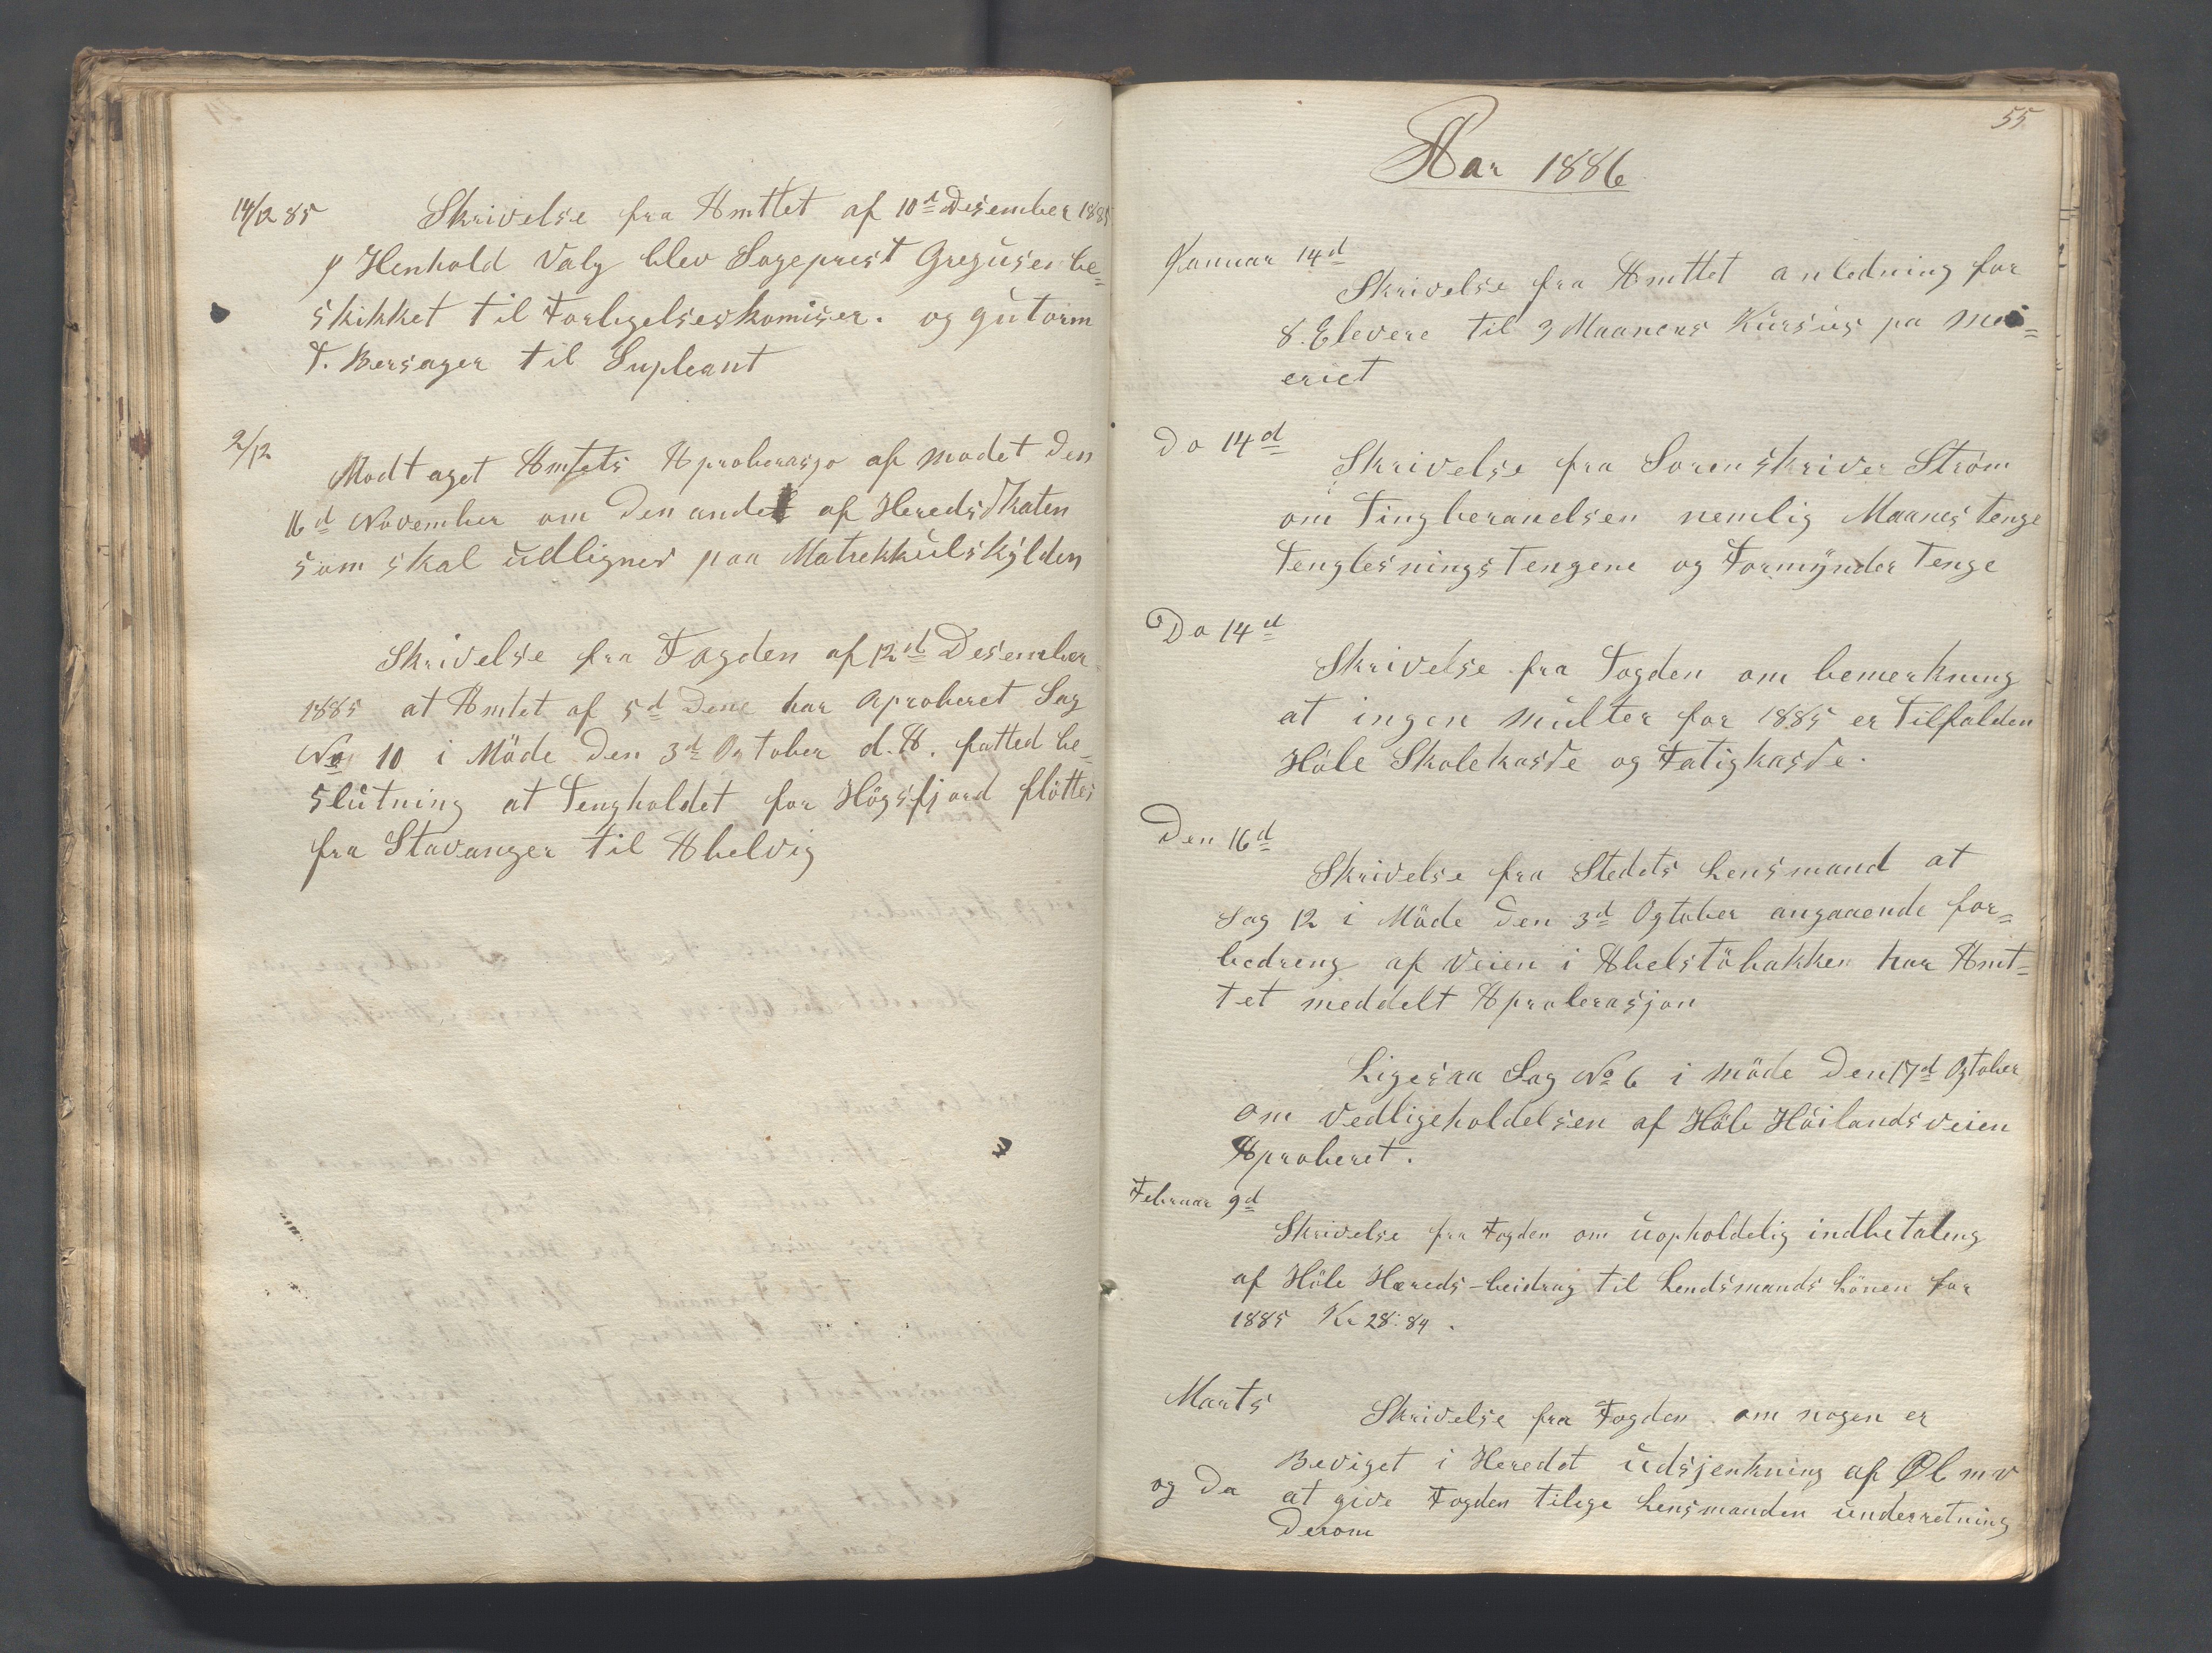 14/12 85 Skrivelse fra Amttet af 10d Desember 1885
y Henhold Valg blev Sogeprest Greguser be=
skikket til Forligelseskomiser. og gutorm
T. Bersager til Supleant
2/12
Modtaget Amtets Aproberasjo af modet Den
16d November om Den andel af Hereds Skaten
som skal udlignes paa Matrekkulskylden
Skrivelse fra Fogden af 12d Desember
1885 at Amtet af 5d Dene har Aproberet Sag
No 10 i Möde Den 3d Ogtober d. A. fatted be=
slutning at Tengholdet for Högsfjord flöttes
fra Stavanger til Ahelvig
55
Aar 1886
Januar 14d
Skrivelse fra Amttet anledning for
8. Elevere til 3 Maaneres Kursus pa mei=
eriet
Do 14d
Skrivelse fra Sorenskriver Ström
om Tingberamelsen nemlig Maanes tenge
Tenglesningstengene og Formynder tenge
Do 14d
Skrivelse fra Fogden om bemerkning
at ingen multer for 1885 er Tilfalden
Höle Skolekasse og Fatigkasse.
Den 16d
Skrivelse fra Stedets Lensmand at
Sag 12 i Möde Den 3d Ogtober angaaende for=
bedreng af Veien i Ahelstöbakken har Amt=
tet meddelt Aproberasjon
Ligesaa Sag No 6 i möde Den 17d Ogtober
om Vedligeholdelsen af Höle Höilandsveien
Aproberet.
Februar 9d
Skrivelse fra Fogden om uopholdelig indbetaleng
af Höle Hereds-beidrag til Lendsmands Lönen for
1885 Kr 28:84.
Marts Skrivelse fra Fogden om nogen er
Beviget i Heredet Udsjenkning af Øl m v
og Da at give Fogden tilige Lensmanden underretning
Derom